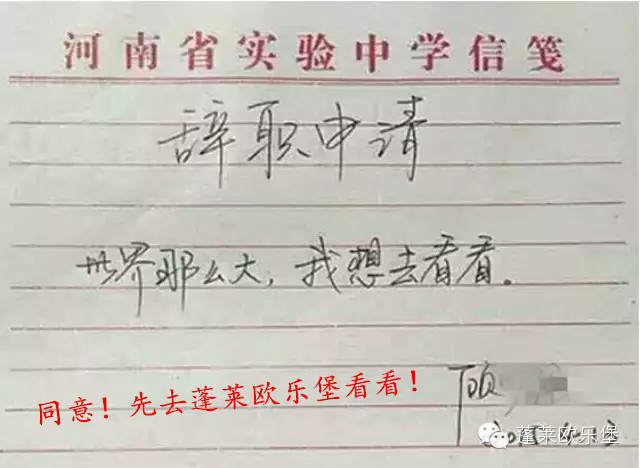 河南省实验中学信笺
辞职申请
世界那么大，我想去看看。
同意！先去蓬莱欧乐堡看看！
顾
蓬莱欧乐堡